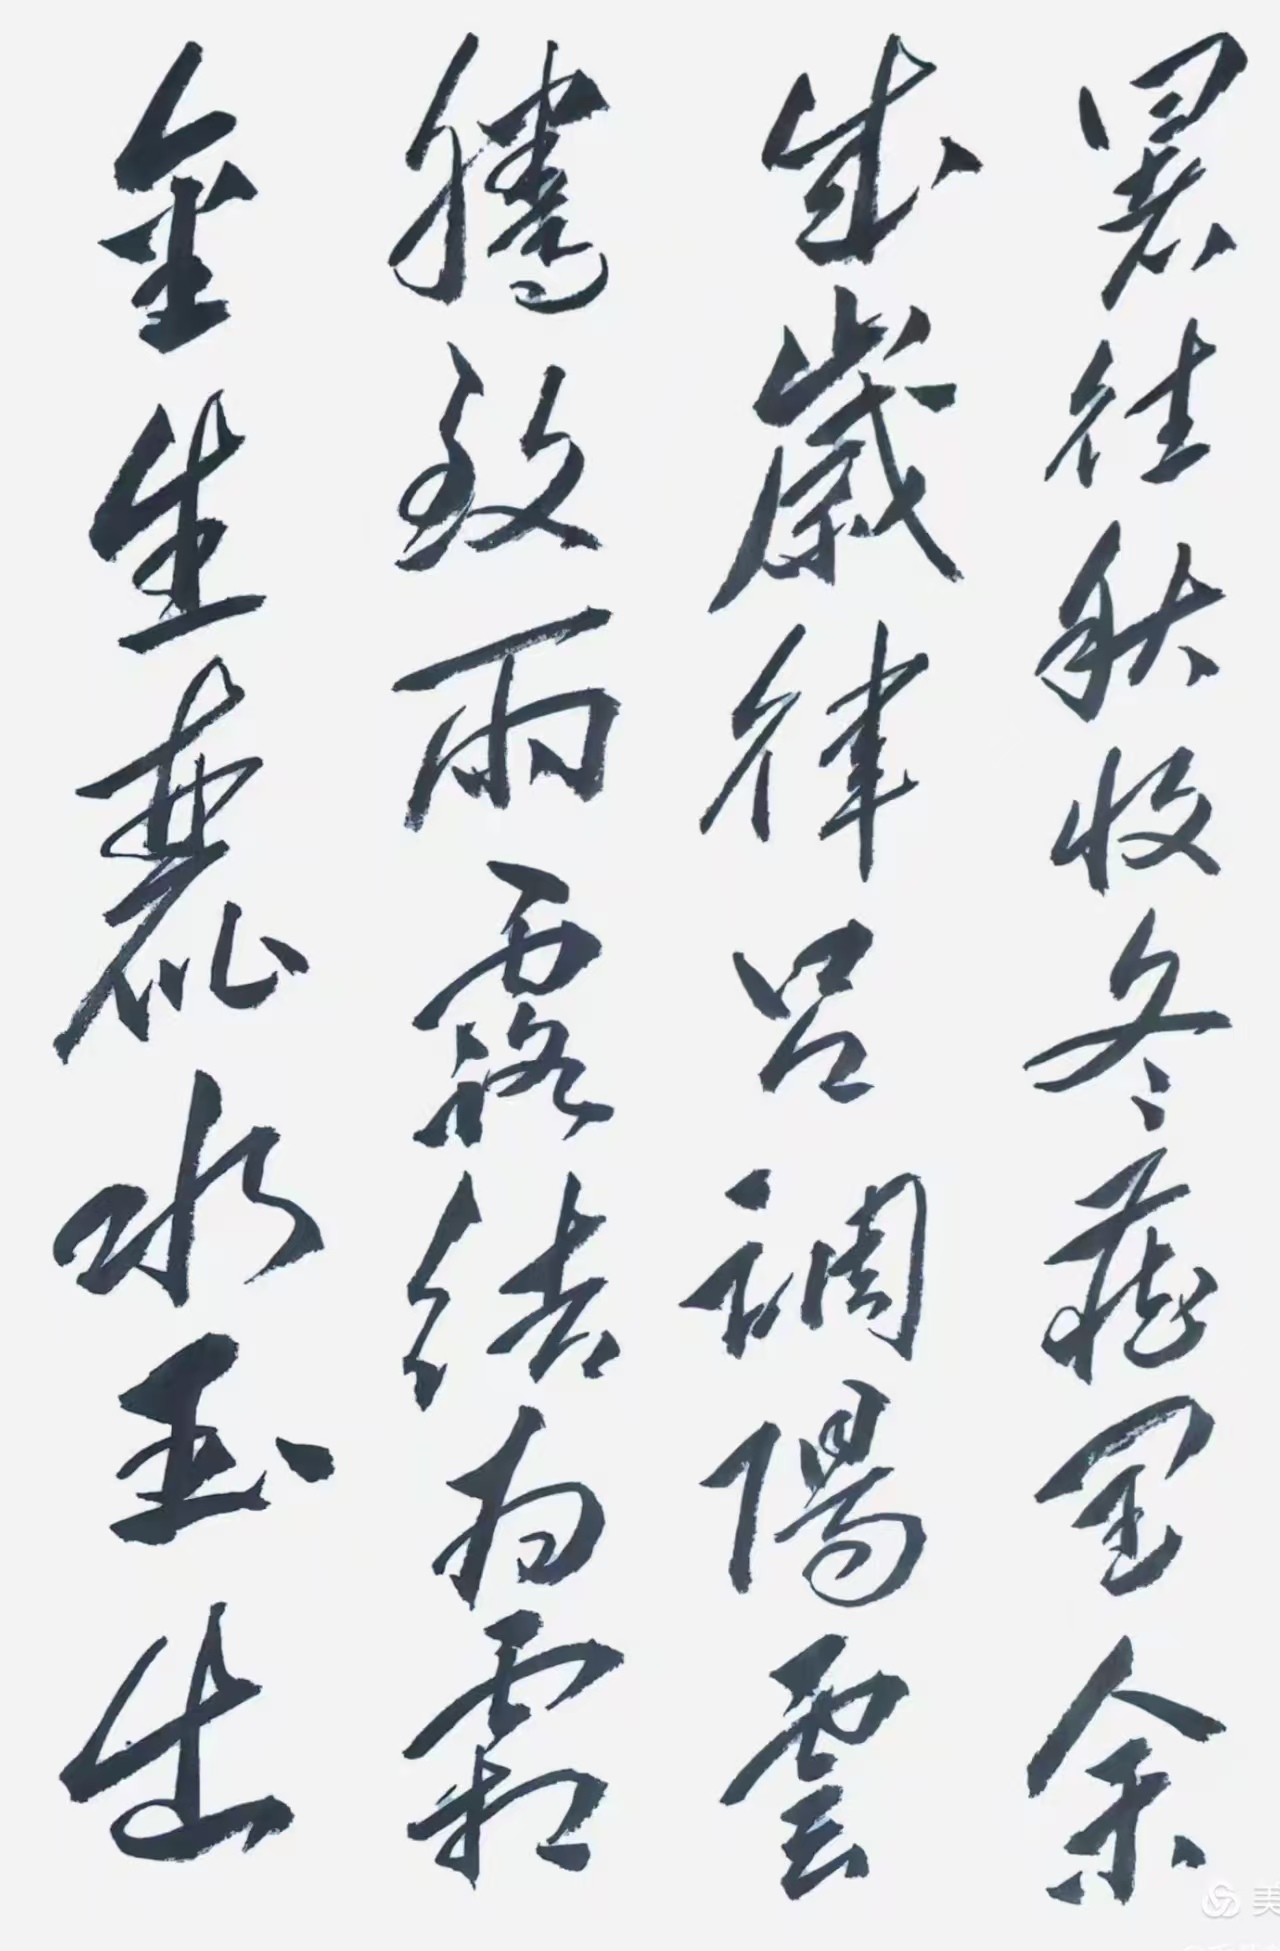 暑往秋收冬藏閏余
成歲律呂調陽雲
騰致雨露結為霜
金生麗水玉出
美